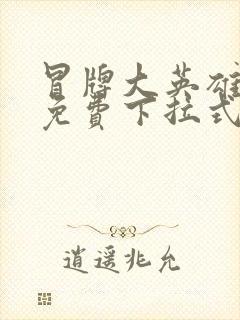 冒牌大英雄
免費下拉式
逍遥兆允